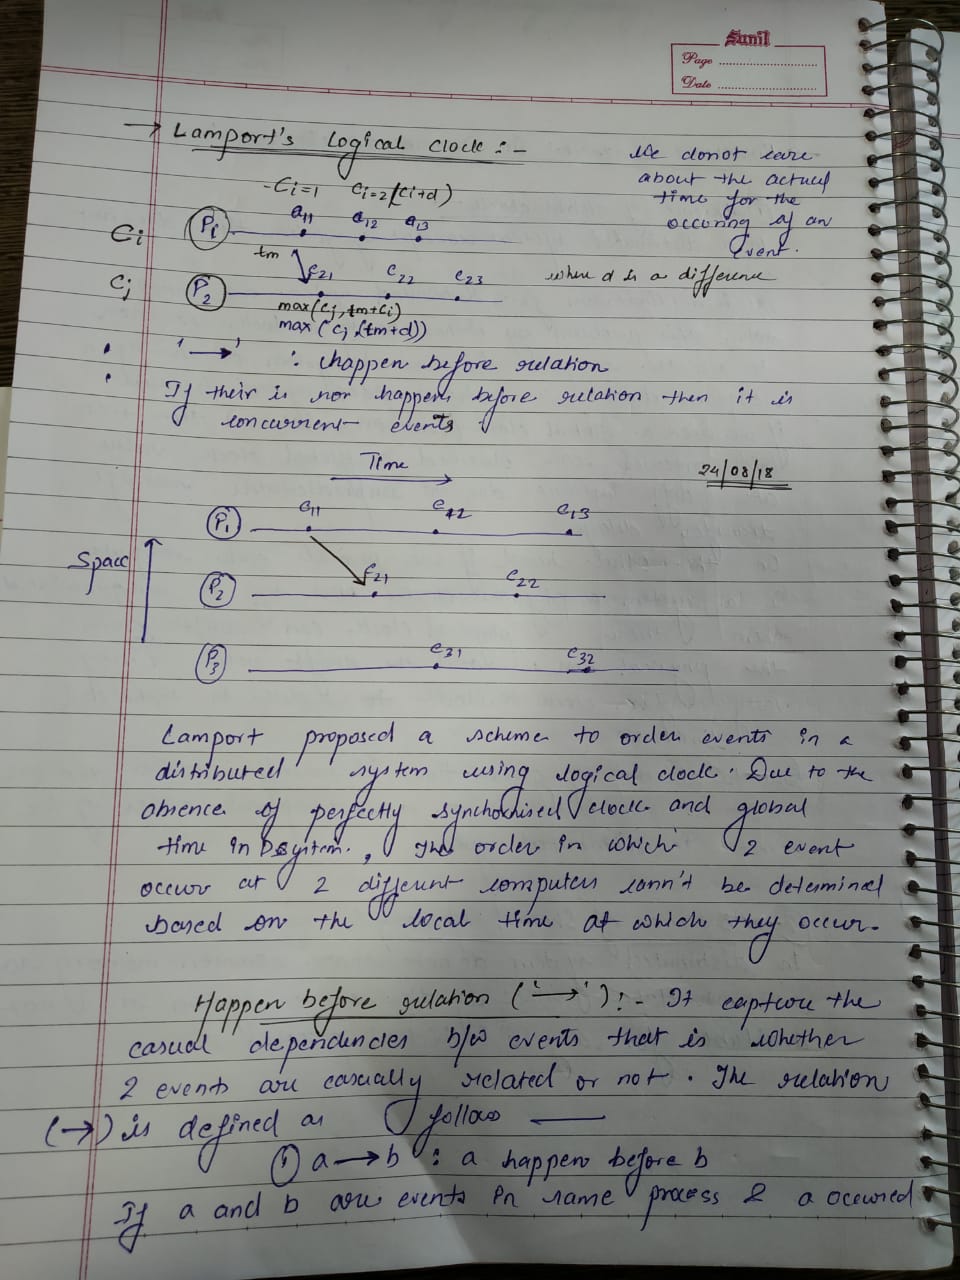 Sunil
Page
Date
→ Lamport's logical clock :-
We donot care
about the actual
time for the
occuring of an
event.
-Ci=1 Ci=2(Ci+d)
P1 a11 e12 e13
Ci
tm
Cj
P2 e21 e22 e23 where d is a difference
max(Cj, tm+Ci)
max (Cj, (tm+d))
'→' : happen before relation
If their is nor happen before relation then it is
concurrent events
Time
24/08/18
P1 e11 e12 e13
Space
P2 e21 e22
P3 e31 e32
Lamport proposed a scheme to order events in a
distributed system using logical clock. Due to the
absence of perfectly synchonised clock and global
time in D system., The order in which 2 event
occur at 2 different computers cann't be determined
based on the local time at which they occur.
Happen before relation ('→') :- It capture the
casual dependencies b/w events that is whether
2 events are casually related or not. The relation
(→) is defined as follow —
① a→b : a happen before b
If a and b are events in same process & a occured